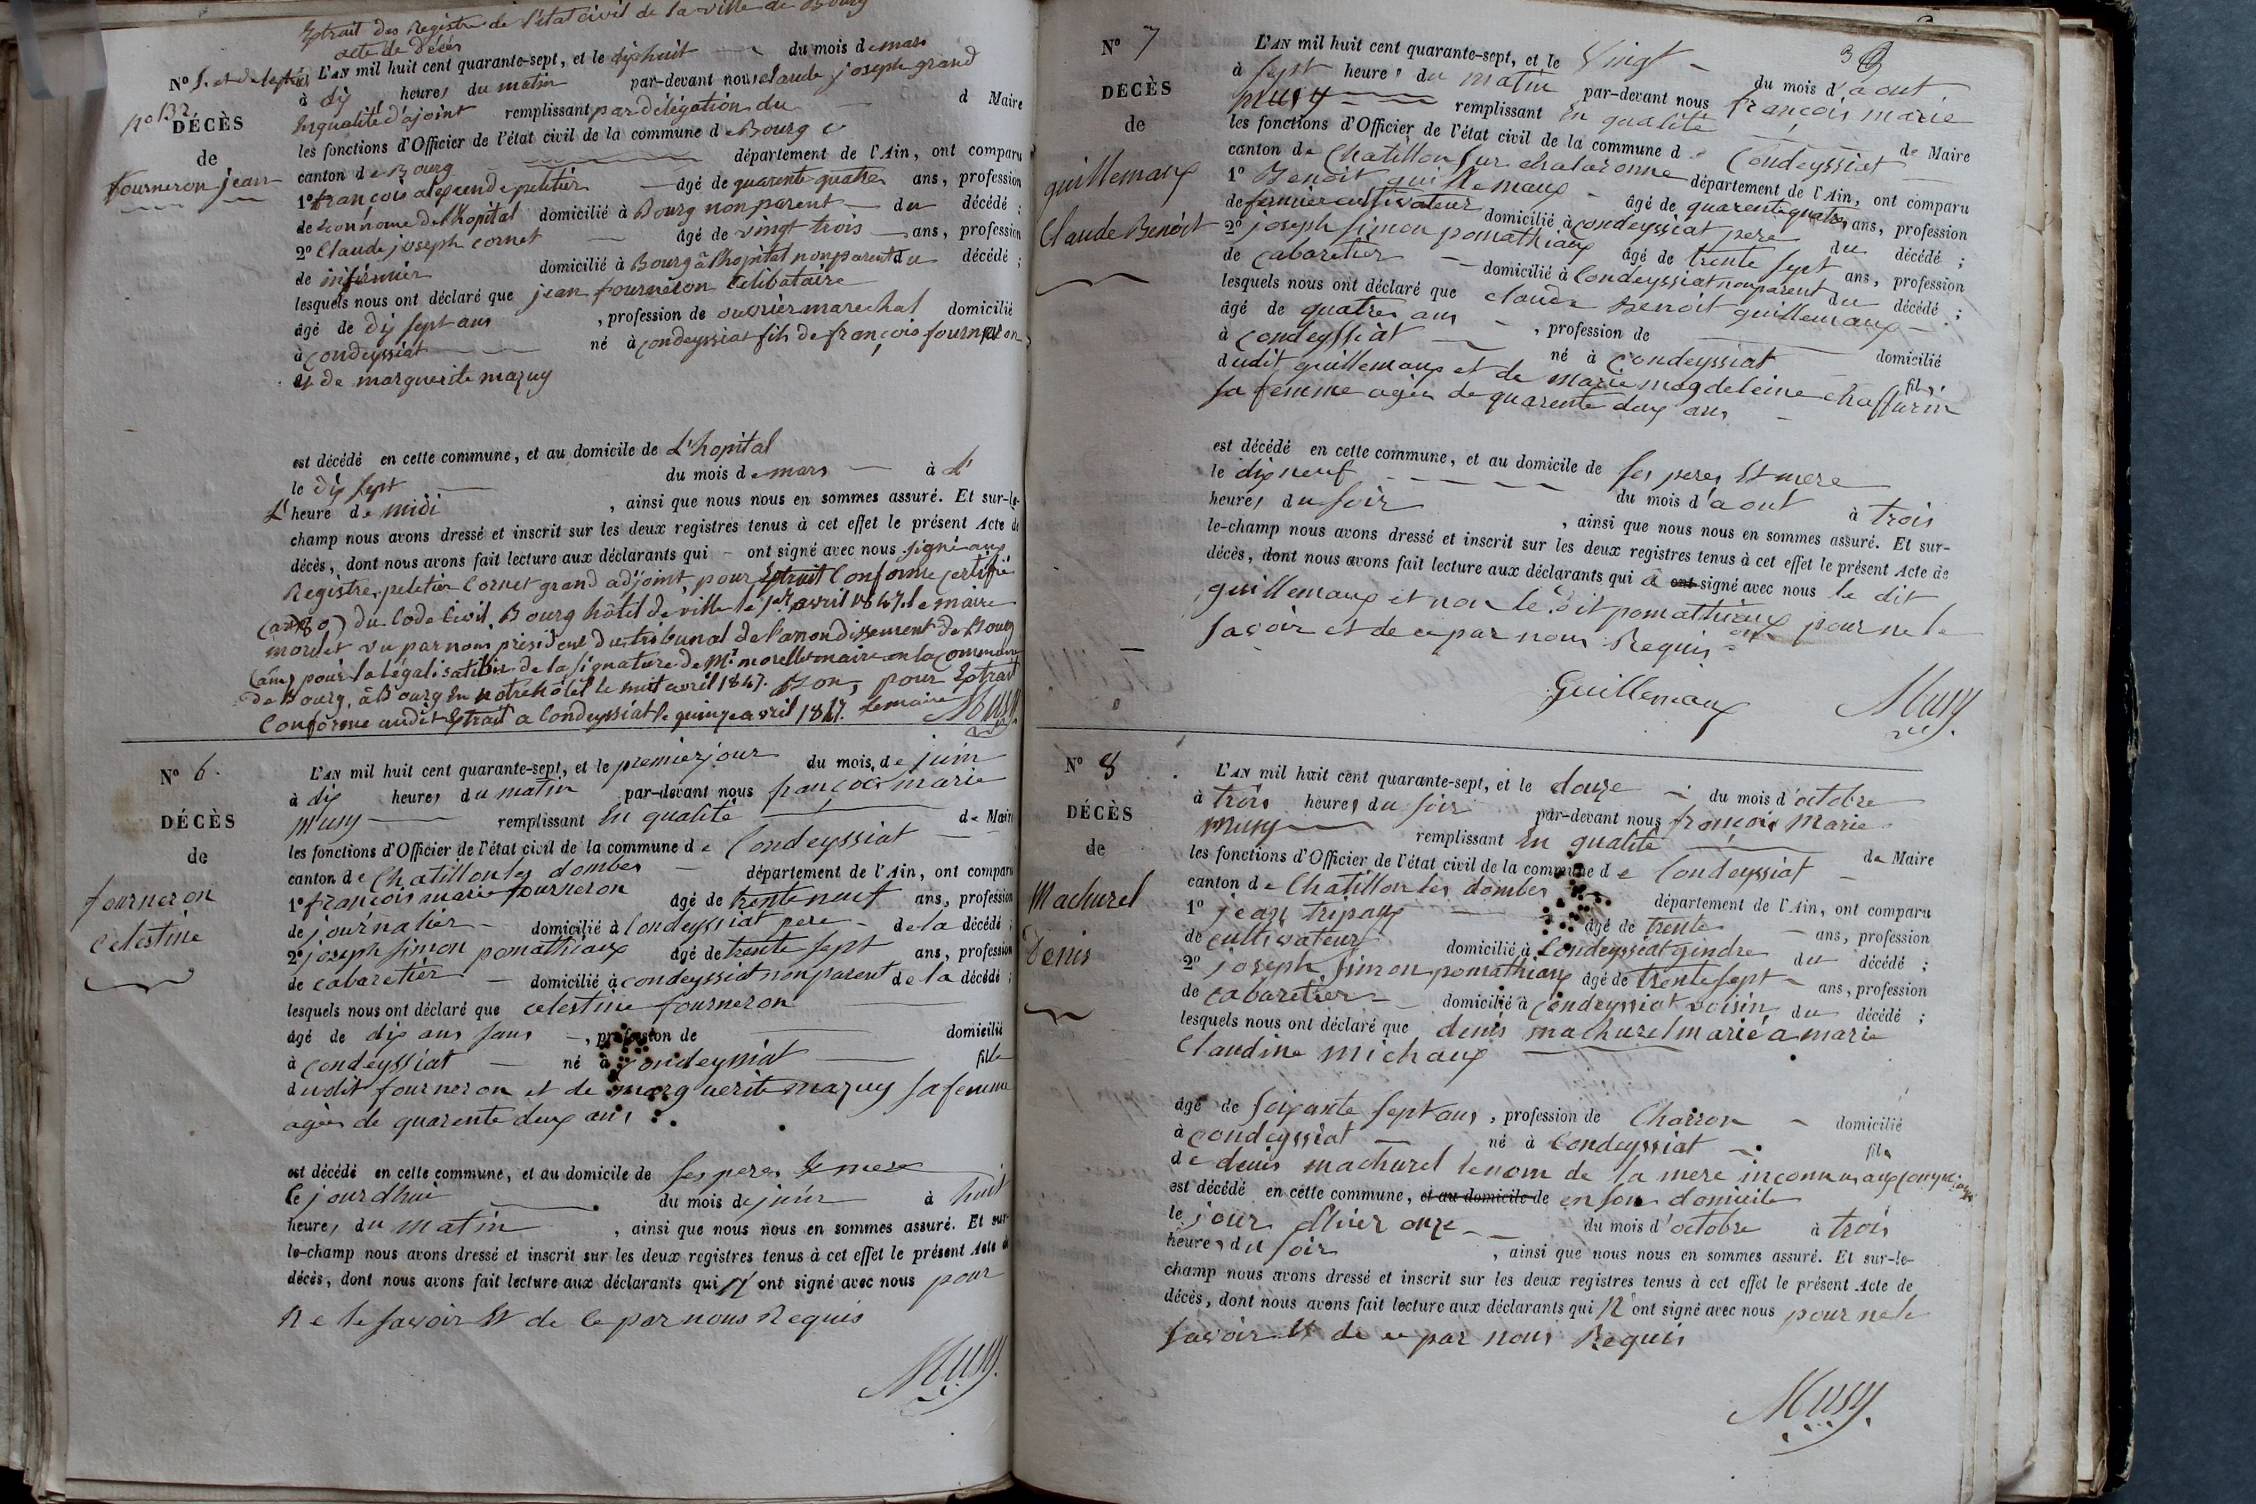 Extrait des Registre de l'état civil de la ville de Bourg
acte de Décès
N° 5. et de
no 132
DÉCÈS
de
fourneron jean
L'AN mil huit cent quarante-sept, et le dix huit du mois de mars
à dix heures du matin par-devant nous claude joseph grand
En qualité d'ajoint remplissant par délégation du d Maire
les fonctions d'Officier de l'état civil de la commune de Bourg
canton de Bourg département de l'Ain, ont comparu
1° françois petitier âgé de quarente quatre ans, profession
de Econnome de l'hopital domicilié à Bourg non parent du décédé ;
2° Claude joseph cornet âgé de vingt trois ans, profession
de infirmier domicilié à Bourg à l'hopital non parent du décédé ;
lesquels nous ont déclaré que jean fourneron Celibataire
âgé de dix sept ans , profession de ouvrier marechal domicilié
à Condeyssiat né à condeyssiat fils de françois fourneron
et de marguerite mazuy
est décédé en cette commune, et au domicile de L'hopital
le dix sept du mois de mars à L'
L'heure de midi , ainsi que nous nous en sommes assuré. Et sur-le-
champ nous avons dressé et inscrit sur les deux registres tenus à cet effet le présent Acte de
décès, dont nous avons fait lecture aux déclarants qui ont signé avec nous signé aux
Registre, peletier Cornet grand adjoint, pour Extrait Conforme certifié
du Code Civil, Bourg hôtel de ville le 1er avril 1847. le maire
morelet vu par nous président du tribunal de l'arrondissement de Bourg
(ain) pour la légalisation de la signature de Mr morellet maire de la Commune
de Bourg, à Bourg En notre hôtel le huit avril 1847. pour Extrait
Conforme audit Extrait a Condeyssiat le quinze avril 1847. Le maire Musy
N° 6.
DÉCÈS
de
fourneron
Celestine
L'AN mil huit cent quarante-sept, et le premier jour du mois de juin
à dix heures du matin par-devant nous françois marie
Musy remplissant En qualité de Maire
les fonctions d'Officier de l'état civil de la commune de Condeyssiat
canton de Chatillon les dombes département de l'Ain, ont comparu
1° françois marie fourneron âgé de trente neuf ans, profession
de journalier domicilié à Condeyssiat pere de la décédé ;
2° joseph simon pomathiaux âgé de trente sept ans, profession
de cabaretier domicilié à condeyssiat non parent de la décédé ;
lesquels nous ont déclaré que celestine fourneron
âgé de dix ans sans , profession de domicilié
à Condeyssiat né à Condeyssiat fille
dudit fourneron et de marguerite mazuy sa femme
agée de quarente deux ans
est décédé en cette commune, et au domicile de ses peres Et mere
le jourdhui du mois de juin à huit
heures du matin , ainsi que nous nous en sommes assuré. Et sur-
le-champ nous avons dressé et inscrit sur les deux registres tenus à cet effet le présent Acte de
décès, dont nous avons fait lecture aux déclarants qui N ont signé avec nous pour
Ne le savoir Et de ce par nous Requis
Musy
N° 7
DÉCÈS
de
guillemaux
Claude Benoit
L'AN mil huit cent quarante-sept, et le Vingt du mois d'aout
à sept heures du matin par-devant nous françois marie
Musy remplissant En qualité de Maire
les fonctions d'Officier de l'état civil de la commune de Condeyssiat
canton de Chatillon sur chalaronne département de l'Ain, ont comparu
1° Benoit guillemaux âgé de quarente quatre ans, profession
de fermier cultivateur domicilié à condeyssiat pere du décédé ;
2° joseph simon pomathiaux âgé de trente sept ans, profession
de cabaretier domicilié à Condeyssiat non parent du décédé ;
lesquels nous ont déclaré que claude Benoit guillemaux
âgé de quatre ans , profession de domicilié
à Condeyssiat né à Condeyssiat fils
dudit guillemaux et de marie magdeleine chaffurin
sa femme agée de quarente deux ans
est décédé en cette commune, et au domicile de ses peres Et mere
le dix neuf du mois d'aout à trois
heures du soir , ainsi que nous nous en sommes assuré. Et sur-
le-champ nous avons dressé et inscrit sur les deux registres tenus à cet effet le présent Acte de
décès, dont nous avons fait lecture aux déclarants qui a ont signé avec nous le dit
guillemaux et non le dit pomathiaux pour ne le
savoir et de ce par nous Requis
Guillemaux Musy
N° 8
DÉCÈS
de
Machurel
Denis
L'AN mil huit cent quarante-sept, et le douze du mois d'octobre
à trois heures du soir par-devant nous françois Marie
Musy remplissant En qualité de Maire
les fonctions d'Officier de l'état civil de la commune de Condeyssiat
canton de Chatillon les dombes département de l'Ain, ont comparu
1° jean tripoux âgé de trente ans, profession
de cultivateur domicilié à Condeyssiat gindre du décédé ;
2° joseph simon pomathiaux âgé de trente sept ans, profession
de cabaretier domicilié à Condeyssiat voisin du décédé ;
lesquels nous ont déclaré que denis machurel marié a marie
Claudine michaux
âgé de soixante sept ans , profession de Charron domicilié
à Condeyssiat né à Condeyssiat fils
de denis machurel le nom de la mere inconnu aux
est décédé en cette commune, et au domicile de en son domicile
le jour d'hier onze du mois d'octobre à trois
heures du soir , ainsi que nous nous en sommes assuré. Et sur-le-
champ nous avons dressé et inscrit sur les deux registres tenus à cet effet le présent Acte de
décès, dont nous avons fait lecture aux déclarants qui N ont signé avec nous pour ne le
savoir Et de ce par nous Requis
Musy